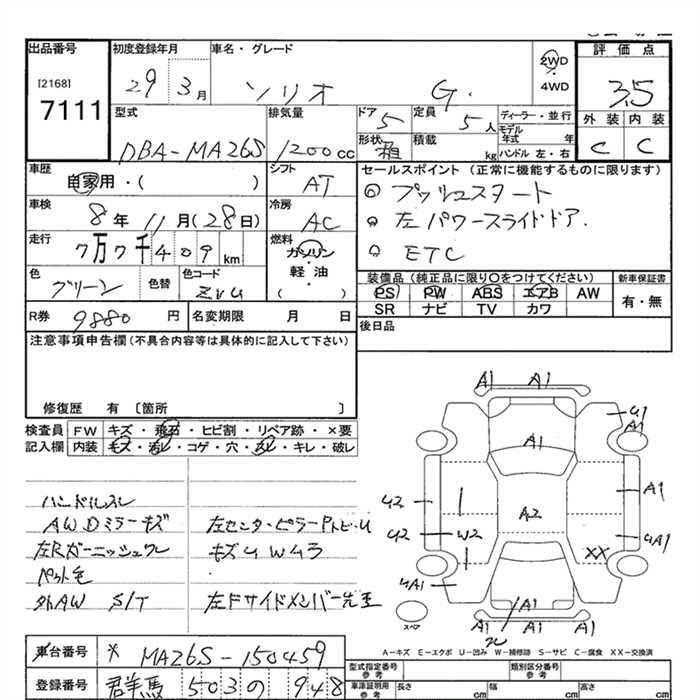 出品番号 初度登録年月 車名・グレード 評価点
[2168] 7111 29 3月 ソリオ G. 2WD 4WD 3.5
型式 排気量 ドア 5 定員 5人 ディーラー・並行 外装 内装
DBA-MA26S 1200cc 形状 箱 積載 kg モデル年式 年 ハンドル 左・右 C C
車歴 シフト セールスポイント (正常に機能するものに限ります)
自家用・( ) AT プッシュスタート
車検 冷房 左パワースライドドア.
8年11月(28日) AC ETC
走行 燃料
7万7千409km ガソリン 軽油 ( )
色 色替 色コード 装備品(純正品に限り○をつけてください) 新車保証書
グリーン ZVU PS PW ABS エアB AW 有・無
SR ナビ TV カワ
R券 9880円 名変期限 月 日 後日品
注意事項申告欄(不具合内容等は具体的に記入して下さい)
修復歴 有 〔箇所 〕
検査員 FW キズ・飛石・ヒビ割・リペア跡・×要
記入欄 内装 キズ・汚レ・コゲ・穴・スレ・キレ・破レ
A1 A1
U1 A1
A1
A1
U2 A2
U2 W2 UA1
XX
UA1
A1
A1 A1
スペア
ハンドルスレ
AWDミラーキズ 左センターピラーPトビ・U
左Rガーニッシュワレ キズUWムラ
ペット毛
外AW S/T 左Fサイドメンバー先歪
A-キズ E-エクボ U-凹み W-補修跡 S-サビ C-腐食 XX-交換済
車台番号 * MA26S-150459 型式指定番号 類別区分番号
登録番号 群馬 503 の 948 車庫証明用参考 長さ cm 幅 cm 高さ cm